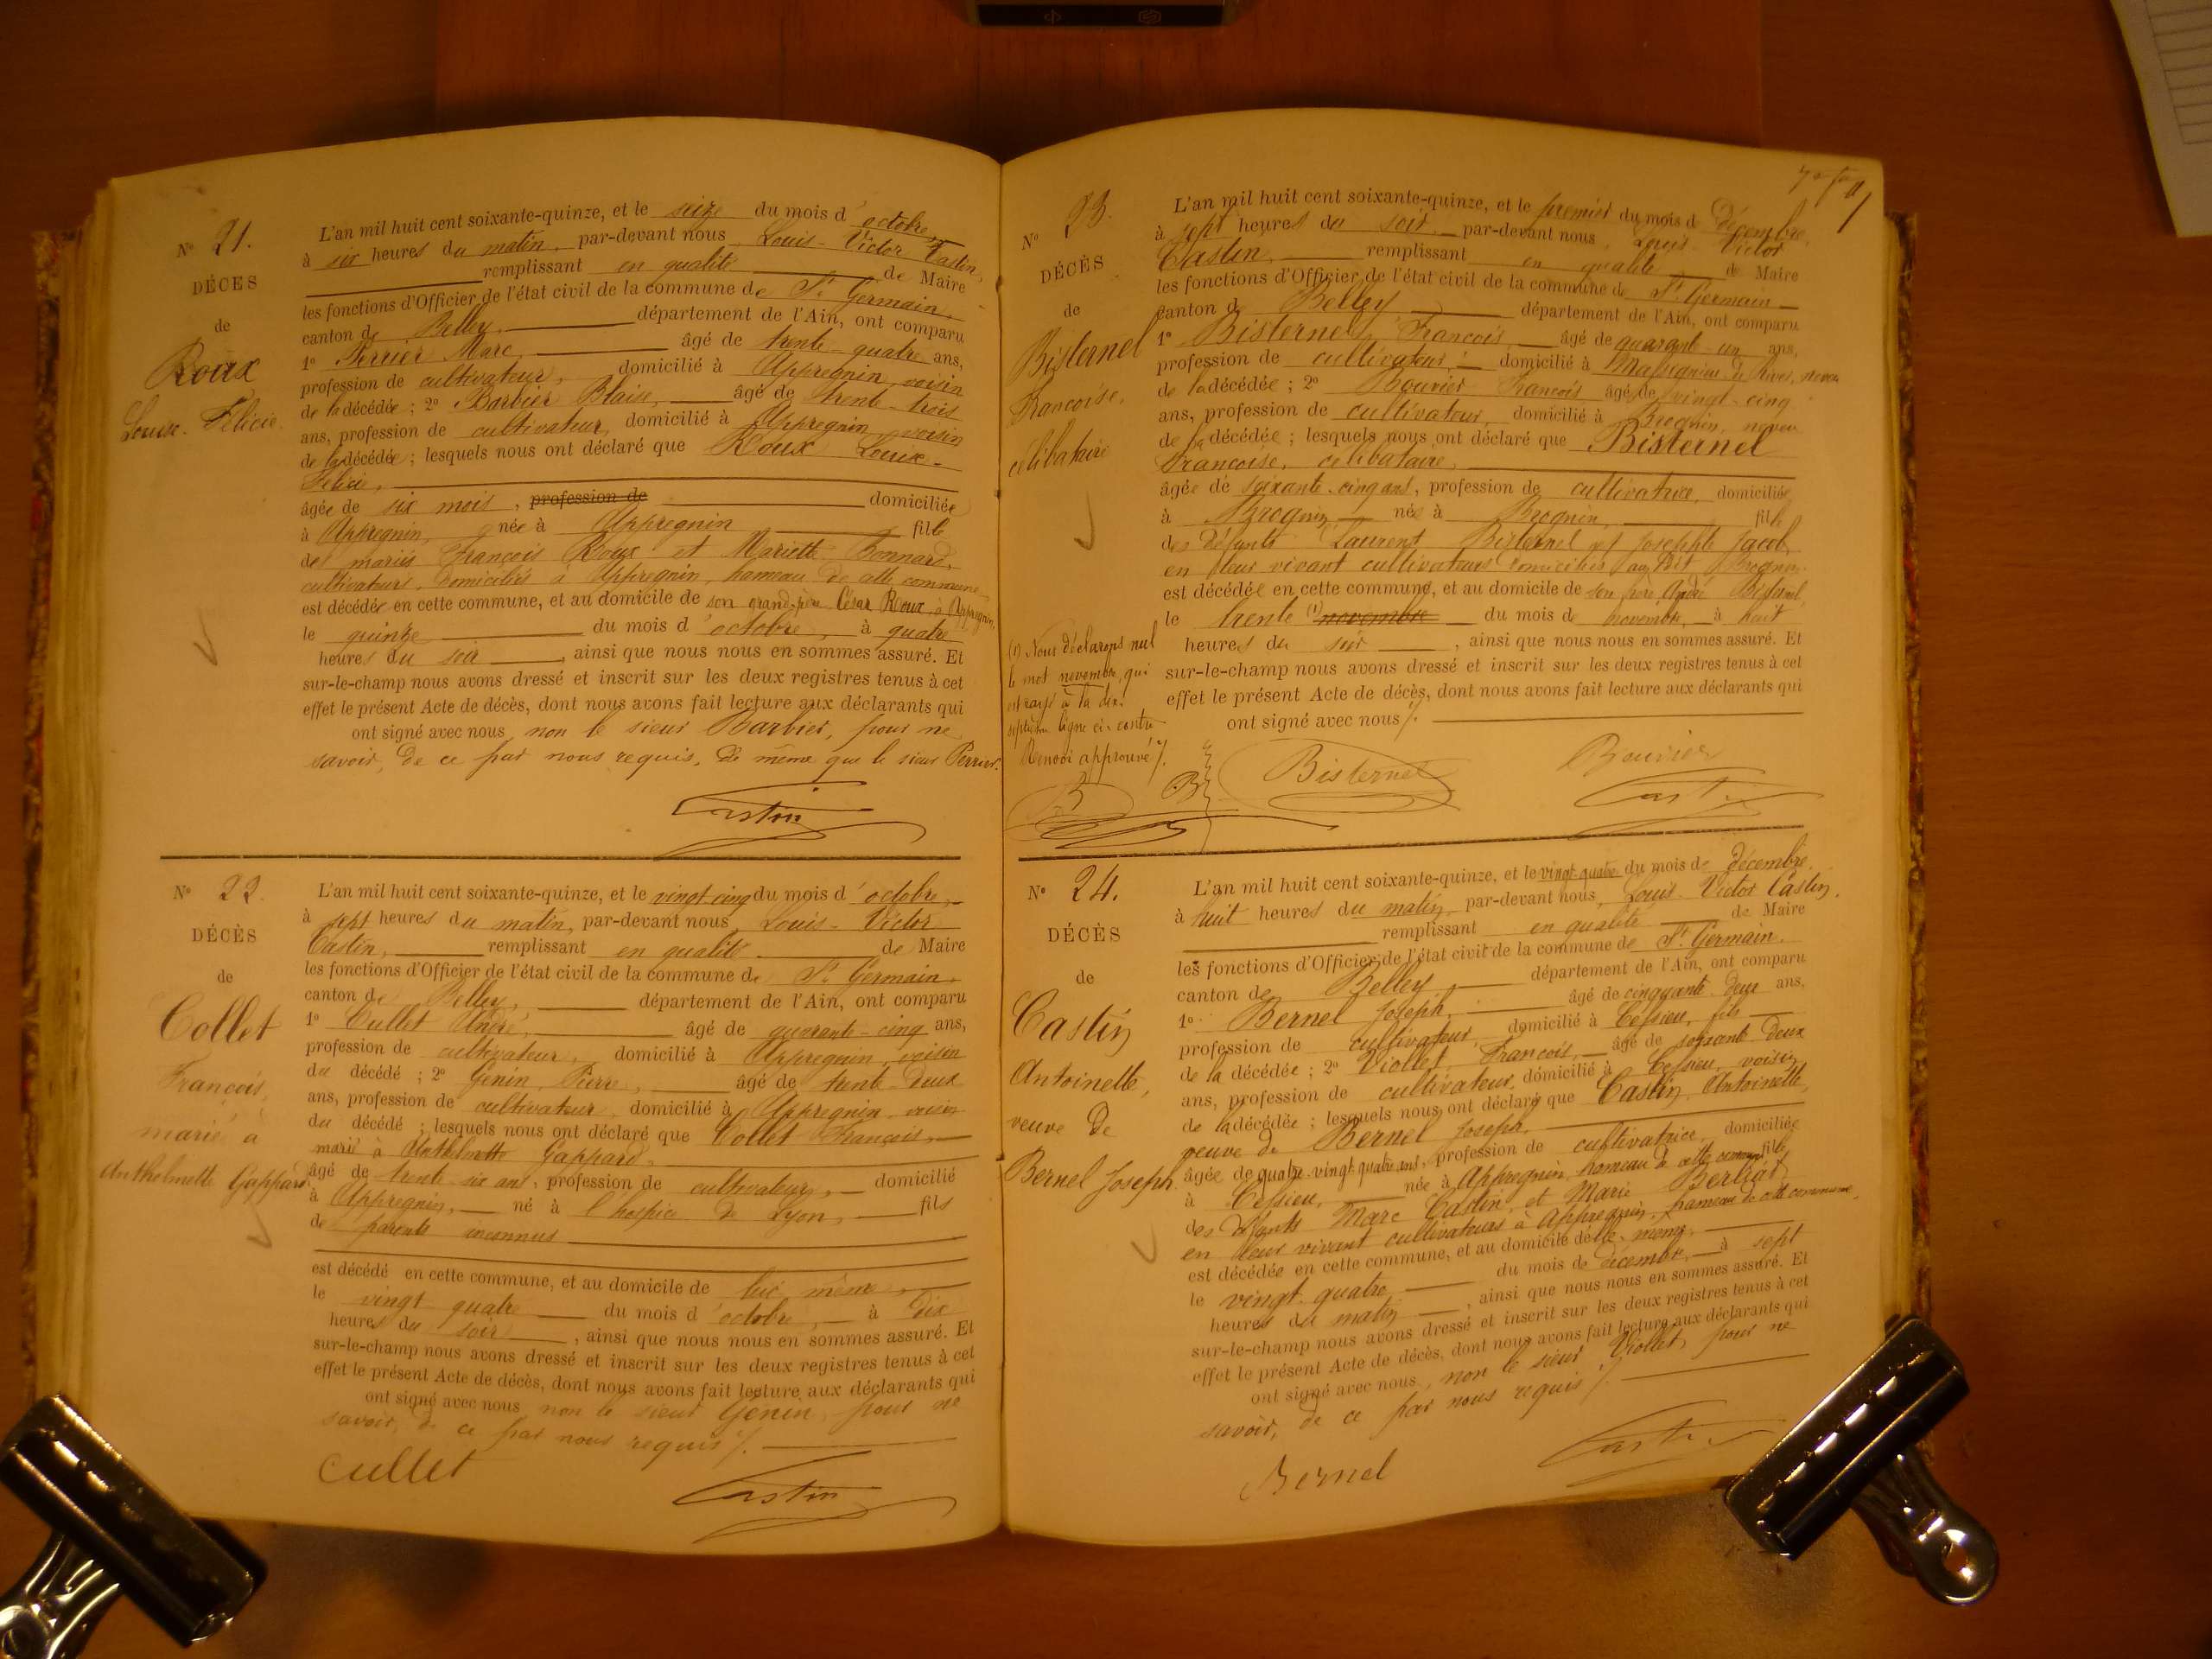 N° 21.
DÉCES
de
Roux
Louise-Félicie
L'an mil huit cent soixante-quinze, et le seize du mois d'octobre,
à six heures du matin, par-devant nous Louis-Victor Castin,
remplissant en qualité de Maire
les fonctions d'Officier de l'état civil de la commune de St Germain,
canton de Belley, département de l'Ain, ont comparu
1° Perrier Marc, âgé de trente-quatre ans,
profession de cultivateur, domicilié à Appregnin, voisin
de la décédée ; 2° Barbier Blaise, âgé de trente-trois
ans, profession de cultivateur, domicilié à Appregnin, voisin
de la décédée ; lesquels nous ont déclaré que Roux Louise-
Félicie,
âgée de six mois, profession de domiciliée
à Appregnin, née à Appregnin fille
des mariés François Roux et Mariette Bonnard,
cultivateurs, domiciliés à Appregnin, hameau de cette commune
est décédée en cette commune, et au domicile de son grand-père César Roux, à Appregnin,
le quinze du mois d'octobre, à quatre
heures du soir, ainsi que nous nous en sommes assuré. Et
sur-le-champ nous avons dressé et inscrit sur les deux registres tenus à cet
effet le présent Acte de décès, dont nous avons fait lecture aux déclarants qui
ont signé avec nous non le sieur Barbier, pour ne
savoir, de ce par nous requis, de même que le sieur Perrier.
Castin
N° 22.
DÉCÈS
de
Collet
François,
marié à
Anthelmette Gappard
L'an mil huit cent soixante-quinze, et le vingt cinq du mois d'octobre,
à sept heures du matin, par-devant nous Louis-Victor
Castin, remplissant en qualité de Maire
les fonctions d'Officier de l'état civil de la commune de St Germain,
canton de Belley, département de l'Ain, ont comparu
1° Cullet André, âgé de quarante-cinq ans,
profession de cultivateur, domicilié à Appregnin, voisin
du décédé ; 2° Genin Pierre, âgé de trente-deux
ans, profession de cultivateur, domicilié à Appregnin, voisin
du décédé ; lesquels nous ont déclaré que Collet François,
marié à Anthelmette Gappard,
âgé de trente six ans, profession de cultivateur, domicilié
à Appregnin, né à l'hospice de Lyon, fils
de parents inconnus
est décédé en cette commune, et au domicile de lui même,
le vingt quatre du mois d'octobre, à dix
heures du soir, ainsi que nous nous en sommes assuré. Et
sur-le-champ nous avons dressé et inscrit sur les deux registres tenus à cet
effet le présent Acte de décès, dont nous avons fait lecture aux déclarants qui
ont signé avec nous non le sieur Genin, pour ne
savoir, de ce par nous requis /.
Cullet Castin
N° 23.
DÉCÈS
de
Bisternel
Françoise,
célibataire
L'an mil huit cent soixante-quinze, et le premier du mois de décembre,
à sept heures du soir, par-devant nous, Louis-Victor
Castin, remplissant en qualité de Maire
les fonctions d'Officier de l'état civil de la commune de St Germain
canton de Belley département de l'Ain, ont comparu
1° Bisternel, François, âgé de quarant-un ans,
profession de cultivateur, domicilié à Massignieu de Rives, neveu
de la décédée ; 2° Bouvier François âgé de vingt-cinq
ans, profession de cultivateur, domicilié à Brognin, neveu
de la décédée ; lesquels nous ont déclaré que Bisternel
Françoise, célibataire,
âgée de soixante-cinq ans, profession de cultivatrice, domiciliée
à Brognin née à Brognin, fille
des défunts Laurent Bisternel et Josephte Jacob,
en leur vivant cultivateurs domiciliés au dit Brognin.
est décédée en cette commune, et au domicile de son frère André Bisternel,
le trente (1) novembre du mois de novembre, à huit
heures du soir, ainsi que nous nous en sommes assuré. Et
sur-le-champ nous avons dressé et inscrit sur les deux registres tenus à cet
effet le présent Acte de décès, dont nous avons fait lecture aux déclarants qui
ont signé avec nous /.
(1) Nous déclarons nul
le mot novembre, qui
est rayé à la dix-
septième ligne ci-contre
Renvoi approuvé /.
B B
Bisternel Bouvier
Castin
N° 24.
DÉCÈS
de
Castin
Antoinette,
veuve de
Bernel Joseph
L'an mil huit cent soixante-quinze, et le vingt-quatre du mois de décembre,
à huit heures du matin, par-devant nous, Louis-Victor Castin,
remplissant en qualité de Maire
les fonctions d'Officier de l'état civil de la commune de St Germain,
canton de Belley, département de l'Ain, ont comparu
1° Bernel Joseph, âgé de cinquante-deux ans,
profession de cultivateur, domicilié à Cessieu, fils
de la décédée ; 2° Viollet François, âgé de soixante deux
ans, profession de cultivateur, domicilié à Cessieu, voisin
de la décédée ; lesquels nous ont déclaré que Castin, Antoinette,
veuve de Bernel Joseph,
âgée de quatre-vingt-quatre ans, profession de cultivatrice, domiciliée
à Cessieu, née à Appregnin, hameau de cette commune, fille
des défunts Marc Castin, et Marie Berliat,
en leur vivant cultivateurs à Appregnin, hameau de cette commune,
est décédée en cette commune, et au domicile d'elle-même,
le vingt-quatre, du mois de décembre, à sept
heures du matin, ainsi que nous nous en sommes assuré. Et
sur-le-champ nous avons dressé et inscrit sur les deux registres tenus à cet
effet le présent Acte de décès, dont nous avons fait lecture aux déclarants qui
ont signé avec nous, non le sieur Viollet, pour ne
savoir, de ce par nous requis /.
Bernel Castin